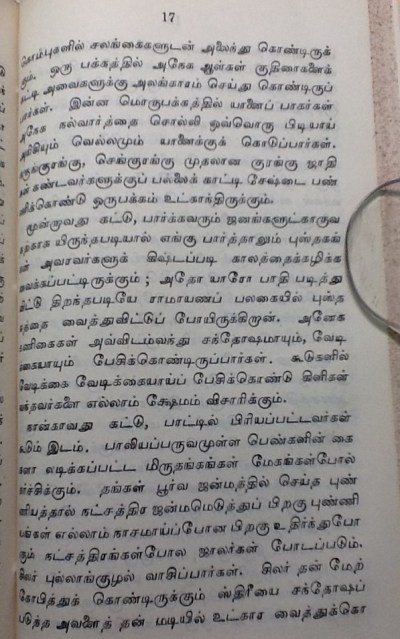 17
கொம்புகளில் சலங்கைகளுடன் அலைந்து கொண்டிருக்
கும். ஒரு பக்கத்தில் அநேக ஆள்கள் குதிரைகளைக்
கட்டி அவைகளுக்கு அலங்காரம் செய்து கொண்டிருப்
பார்கள். இன்ன மொருபக்கத்தில் யானைப் பாகர்கள்
அநேக நல்வார்த்தை சொல்லி ஒவ்வொரு பிடியாய்
அரிசியும் வெல்லமும் யானைக்குக் கொடுப்பார்கள்.
கருங்குரங்கு, செங்குரங்கு முதலான குரங்கு ஜாதி
கண்டவர்களுக்குப் பல்லைக் காட்டி சேஷ்டை பண்
ணிக்கொண்டு ஒருபக்கம் உட்கார்ந்திருக்கும்.
மூன்றாவது கட்டு, பார்க்கவரும் ஜனங்களுட்காருவ
தற்காக யிருந்தபடியால் எங்கு பார்த்தாலும் புஸ்தகங்
கள் அவரவர்களுக் கிஷ்டப்படி காலத்தைக்கழிக்க
வைக்கப்பட்டிருக்கும் ; அதோ யாரோ பாதி படித்து
விட்டு திறந்தபடியே ராமாயணப் பலகையில் புஸ்த
கத்தை வைத்துவிட்டுப் போயிருக்கிறான். அனேக
கணிகைகள் அவ்விடம்வந்து சந்தோஷமாயும், வேடி
க்கையாயும் பேசிக்கொண்டிருப்பார்கள். கூடுகளில்
வேடிக்கை வேடிக்கையாய்ப் பேசிக்கொண்டு கிளிகள்
வந்தவர்களை எல்லாம் க்ஷேமம் விசாரிக்கும்.
நான்காவது கட்டு, பாட்டில் பிரியப்பட்டவர்கள்
கூடும் இடம். பாலியப்பருவமுள்ள பெண்களின் கை
களா லடிக்கப்பட்ட மிருதங்கங்கள் மேகங்கள்போல்
கர்ச்சிக்கும். தங்கள் பூர்வ ஜன்மத்தில் செய்த புண்
ணியத்தால் நட்சத்திர ஜன்மமெடுத்துப் பிறகு புண்ணி
யங்கள் எல்லாம் நாசமாய்ப்போன பிறகு உதிர்ந்துபோ
கும் நட்சத்திரங்கள்போல ஜாலர்கள் போடப்படும்.
சிலர் புல்லாங்குழல் வாசிப்பார்கள். சிலர் தன் மேற்
கோபித்துக் கொண்டிருக்கும் ஸ்திரீயை சந்தோஷப்
படுத்த அவளைத் தன் மடியில் உட்கார வைத்துக்கொ